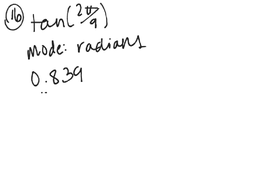 16 tan(2π/9)
mode: radians
0.839